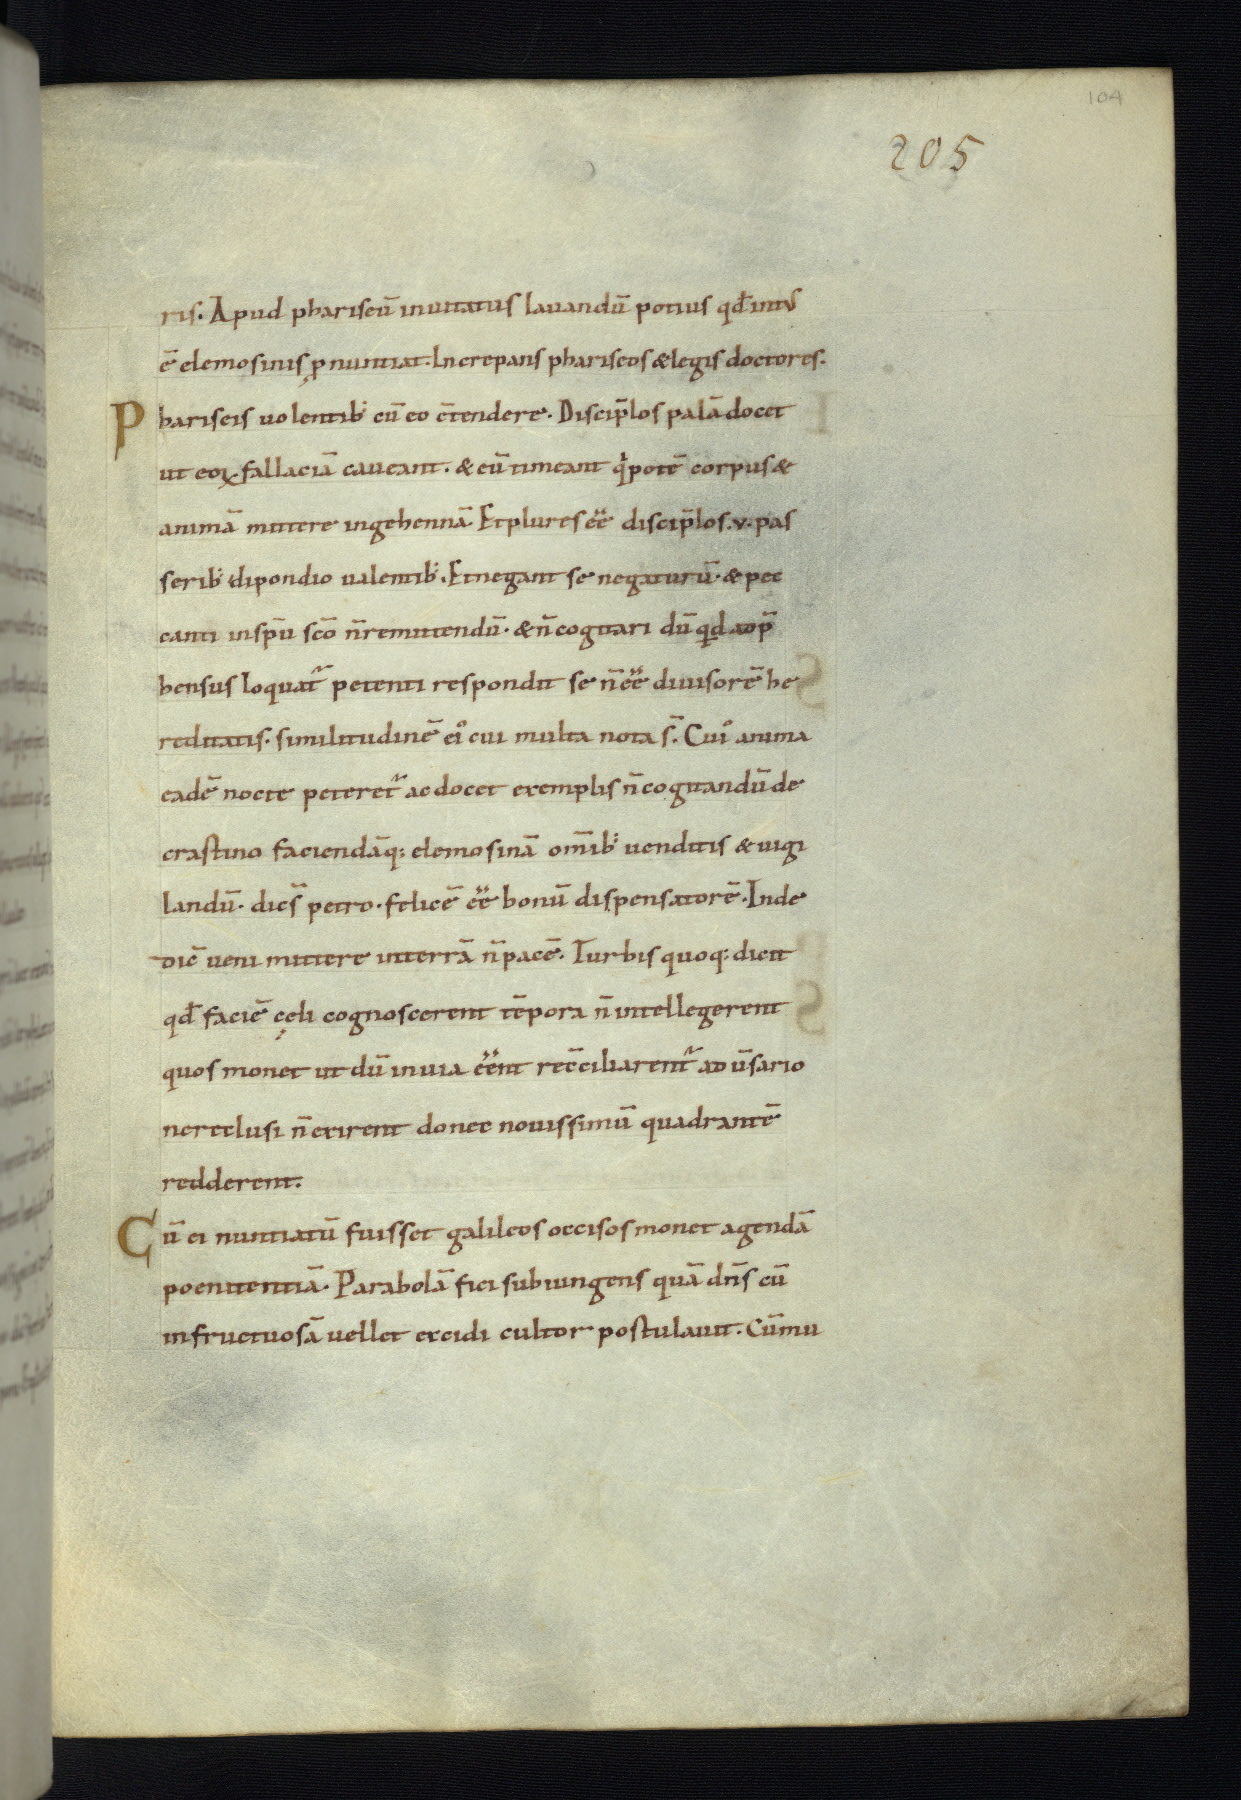 104
205
ris. Apud phariseū inuitatus lauandū potius qđ intus
ē elemosinis p̱nuntiat. Increpans phariseos & legis doctores.
Phariseis uolentib; cū eo c̄tendere. Discip̄los palā docet
ut eoꝝ fallaciā caueant. & eū timeant qͥ potē corpus &
animā mittere in gehennā. Et plures ēē discip̄los .v. pas
serib; dipondio ualentib;. Et negant se negaturū. & pec
canti in sp̄u sc̄o n̄ remittendū. & n̄ cogitari dū qid adp̄
hensus loquat᷑ petenti respondit se n̄ ēē diuisorē he
reditatis. similitudinē ei᷒ cui multa nota s̄. Cui᷒ anima
eadē nocte peteret᷑ ac docet exemplis n̄ cogitandū de
crastino faciendāq; elemosinā om̄ib; uenditis & uigi
landū. dic̄s petro. felicē ēē bonū dispensatorē. Inde
dic̄ ueni mittere in terrā n̄ pacē. Turbis quoq; dicit
qđ faciē cęli cognoscerent tēpora n̄ intellegerent
quos monet ut dū in uia ēēnt rec̄ciliarent᷑ aduīsario
ne reclusi n̄ exirent donec nouissimū quadrantē
redderent.
Cū ei nuntiatū fuisset galileos occisos monet agendā
poenitentiā. Parabolā fici subiungens quā dn̄s cū
infructuosā uellet excidi cultor postulauit. Cū mu